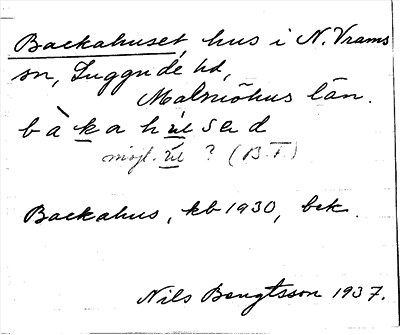 Backahuset, hus i N. Vrams
sn, Luggude hd,
Malmöhus län.
bàka húsad
möjl. ú ? (B.T.)
Backahus, kb 1930, bek.
Nils Bengtsson 1937.